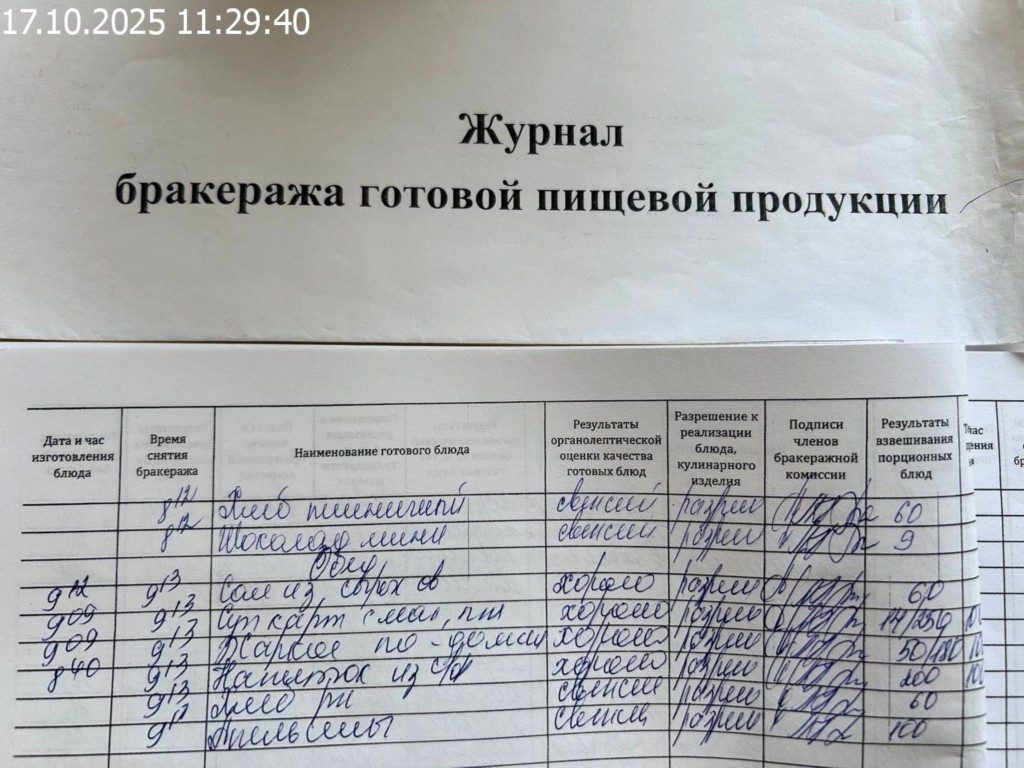 17.10.2025 11:29:40
Журнал
бракеража готовой пищевой продукции
Дата и час изготовления блюда
Время снятия бракеража
Наименование готового блюда
Результаты органолептической оценки качества готовых блюд
Разрешение к реализации блюда, кулинарного изделия
Подписи членов бракеражной комиссии
Результаты взвешивания порционных блюд
8 12 Хлеб пшеничный свежий разреш 60
8 12 Шоколад мини свежий разреш 9
Обед
9 12 9 13 Сал из свеж ов хорошо разреш 60
9 09 9 13 Суп карт с мак, хорошо разреш
9 09 9 13 Жаркое по-домаш хорошо разреш 50/180
8 40 9 13 Напиток из с/ф хорошо разреш 200
9 13 Хлеб рж свежий разреш 60
9 13 Апельсины свежие разреш 100